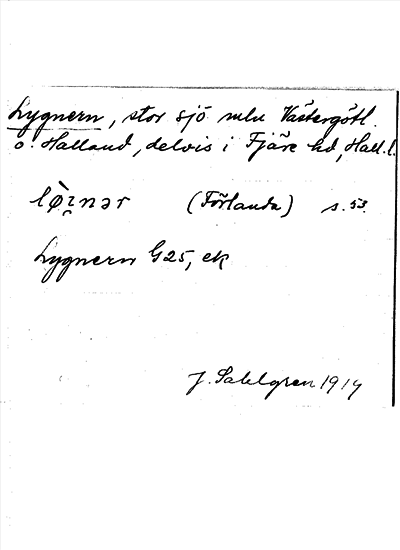 Lygnern, stor sjö mln Västergötl.
o. Halland, delvis i Fjäre hd, Hall.l.
lø̀i̯nər (Förlanda) s. 53.
Lygnern G25, ek
J. Sahlgren 1914